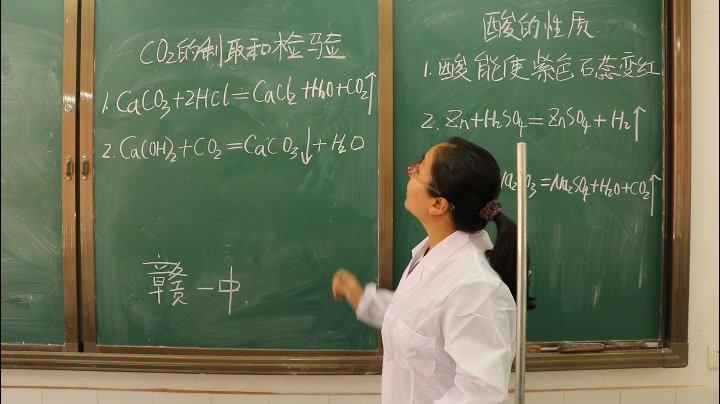 CO₂的制取和检验
1. CaCO₃+2HCl=CaCl₂+H₂O+CO₂↑
2. Ca(OH)₂+CO₂=CaCO₃↓+H₂O
赣一中
酸的性质
1. 酸能使紫色石蕊变红
2. Zn+H₂SO₄=ZnSO₄+H₂↑
=Na₂SO₄+H₂O+CO₂↑